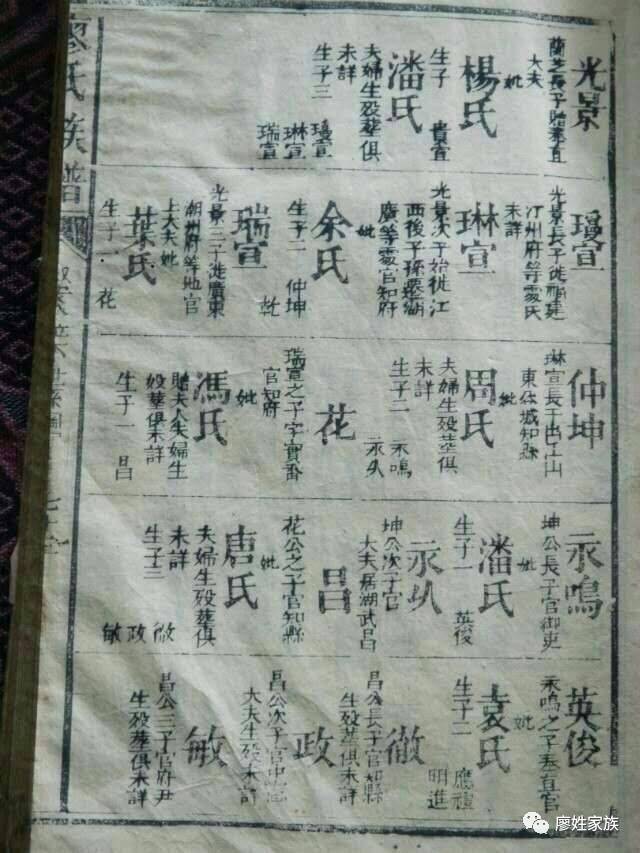 廖氏族譜
光景
蘭芝長子贈奉直
大夫
妣
楊氏
生子 貴宣
潘氏
夫婦生殁葬俱
未詳
生子三
璟宣
琳宣
瑞宣
璟宣
光景長子徙福建
汀州府等處氏
未詳
琳宣
光景次子始徙江
西後子孫遷湖
廣等處官知府
妣
余氏
生子二 仲坤
乾
瑞宣
光景三子徙廣東
潮州府等地官
上大夫妣
葉氏
生子一 花
仲坤
琳宣長子
知縣
妣
周氏
夫婦生殁葬俱
未詳
生子二
永鳴
永從
花
瑞宣之子字實番
官知府
妣
馮氏
贈夫人夫婦生
殁葬俱未詳
生子一 昌
永鳴
坤公長子官御吏
妣
潘氏
生子一 英俊
永從
坤公次子官
大夫居湖武昌
昌
花公之子官知縣
妣
唐氏
夫婦生殁葬俱
未詳
生子三
徹
政
敏
英俊
永鳴之子奉直官
妣
袁氏
生子二
應禮
明進
徹
昌公長子官知縣
生殁葬俱未詳
政
昌公次子官中憲
大夫生殁未詳
敏
昌公三子官府尹
生殁葬俱未詳
廖姓家族